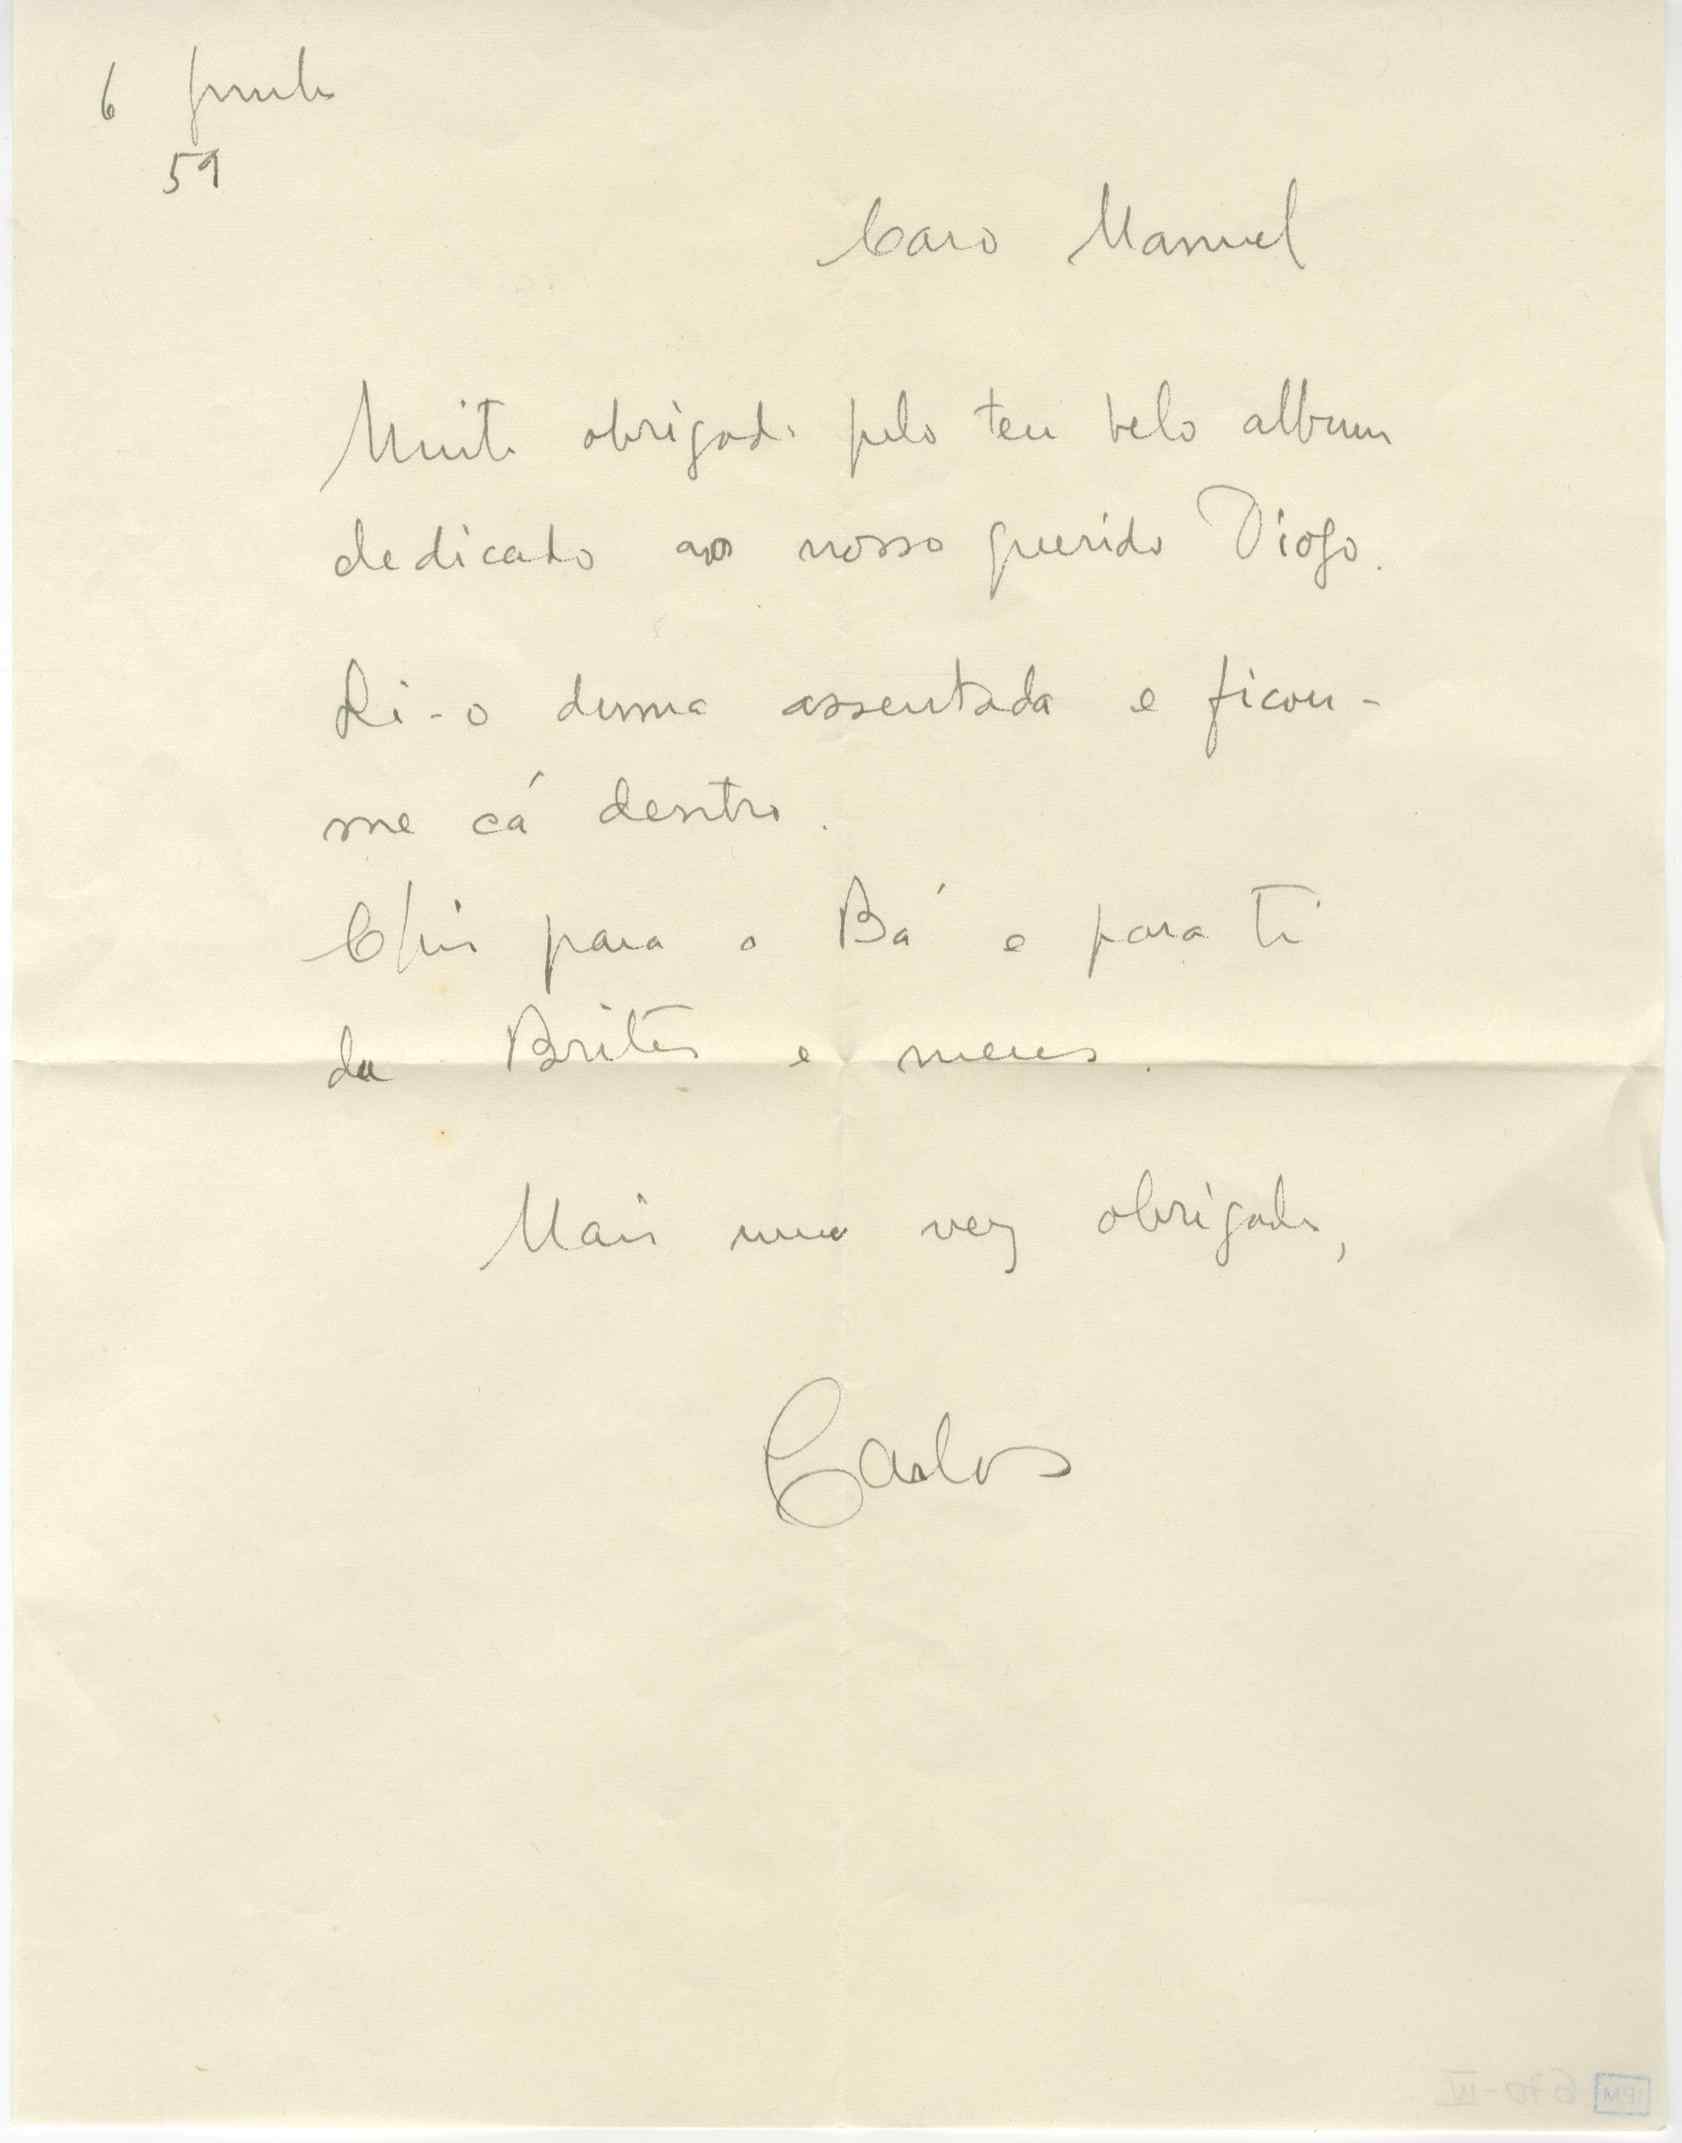 6 Junho
59
Caro Manuel
Muito obrigado pelo teu belo album
dedicado ao nosso querido Diogo.
Li-o duma assentada e ficou-
me cá dentro.
Chis para o Bá e para ti
da Brites e meus.
Mais uma vez obrigado,
Carlos
IPM 670-IV